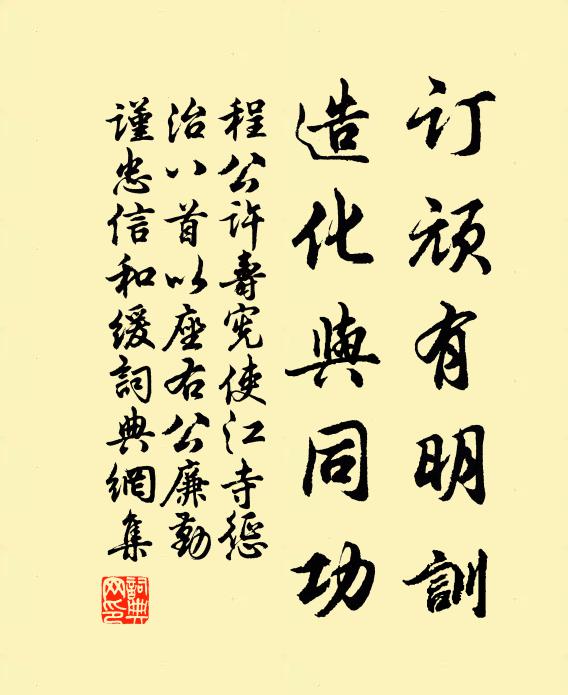 订顽有明訓
造化與同功
程公许壽宪使江寺丞
治八首以座右公廉勤
謹忠信和缓詞典網集
詞典